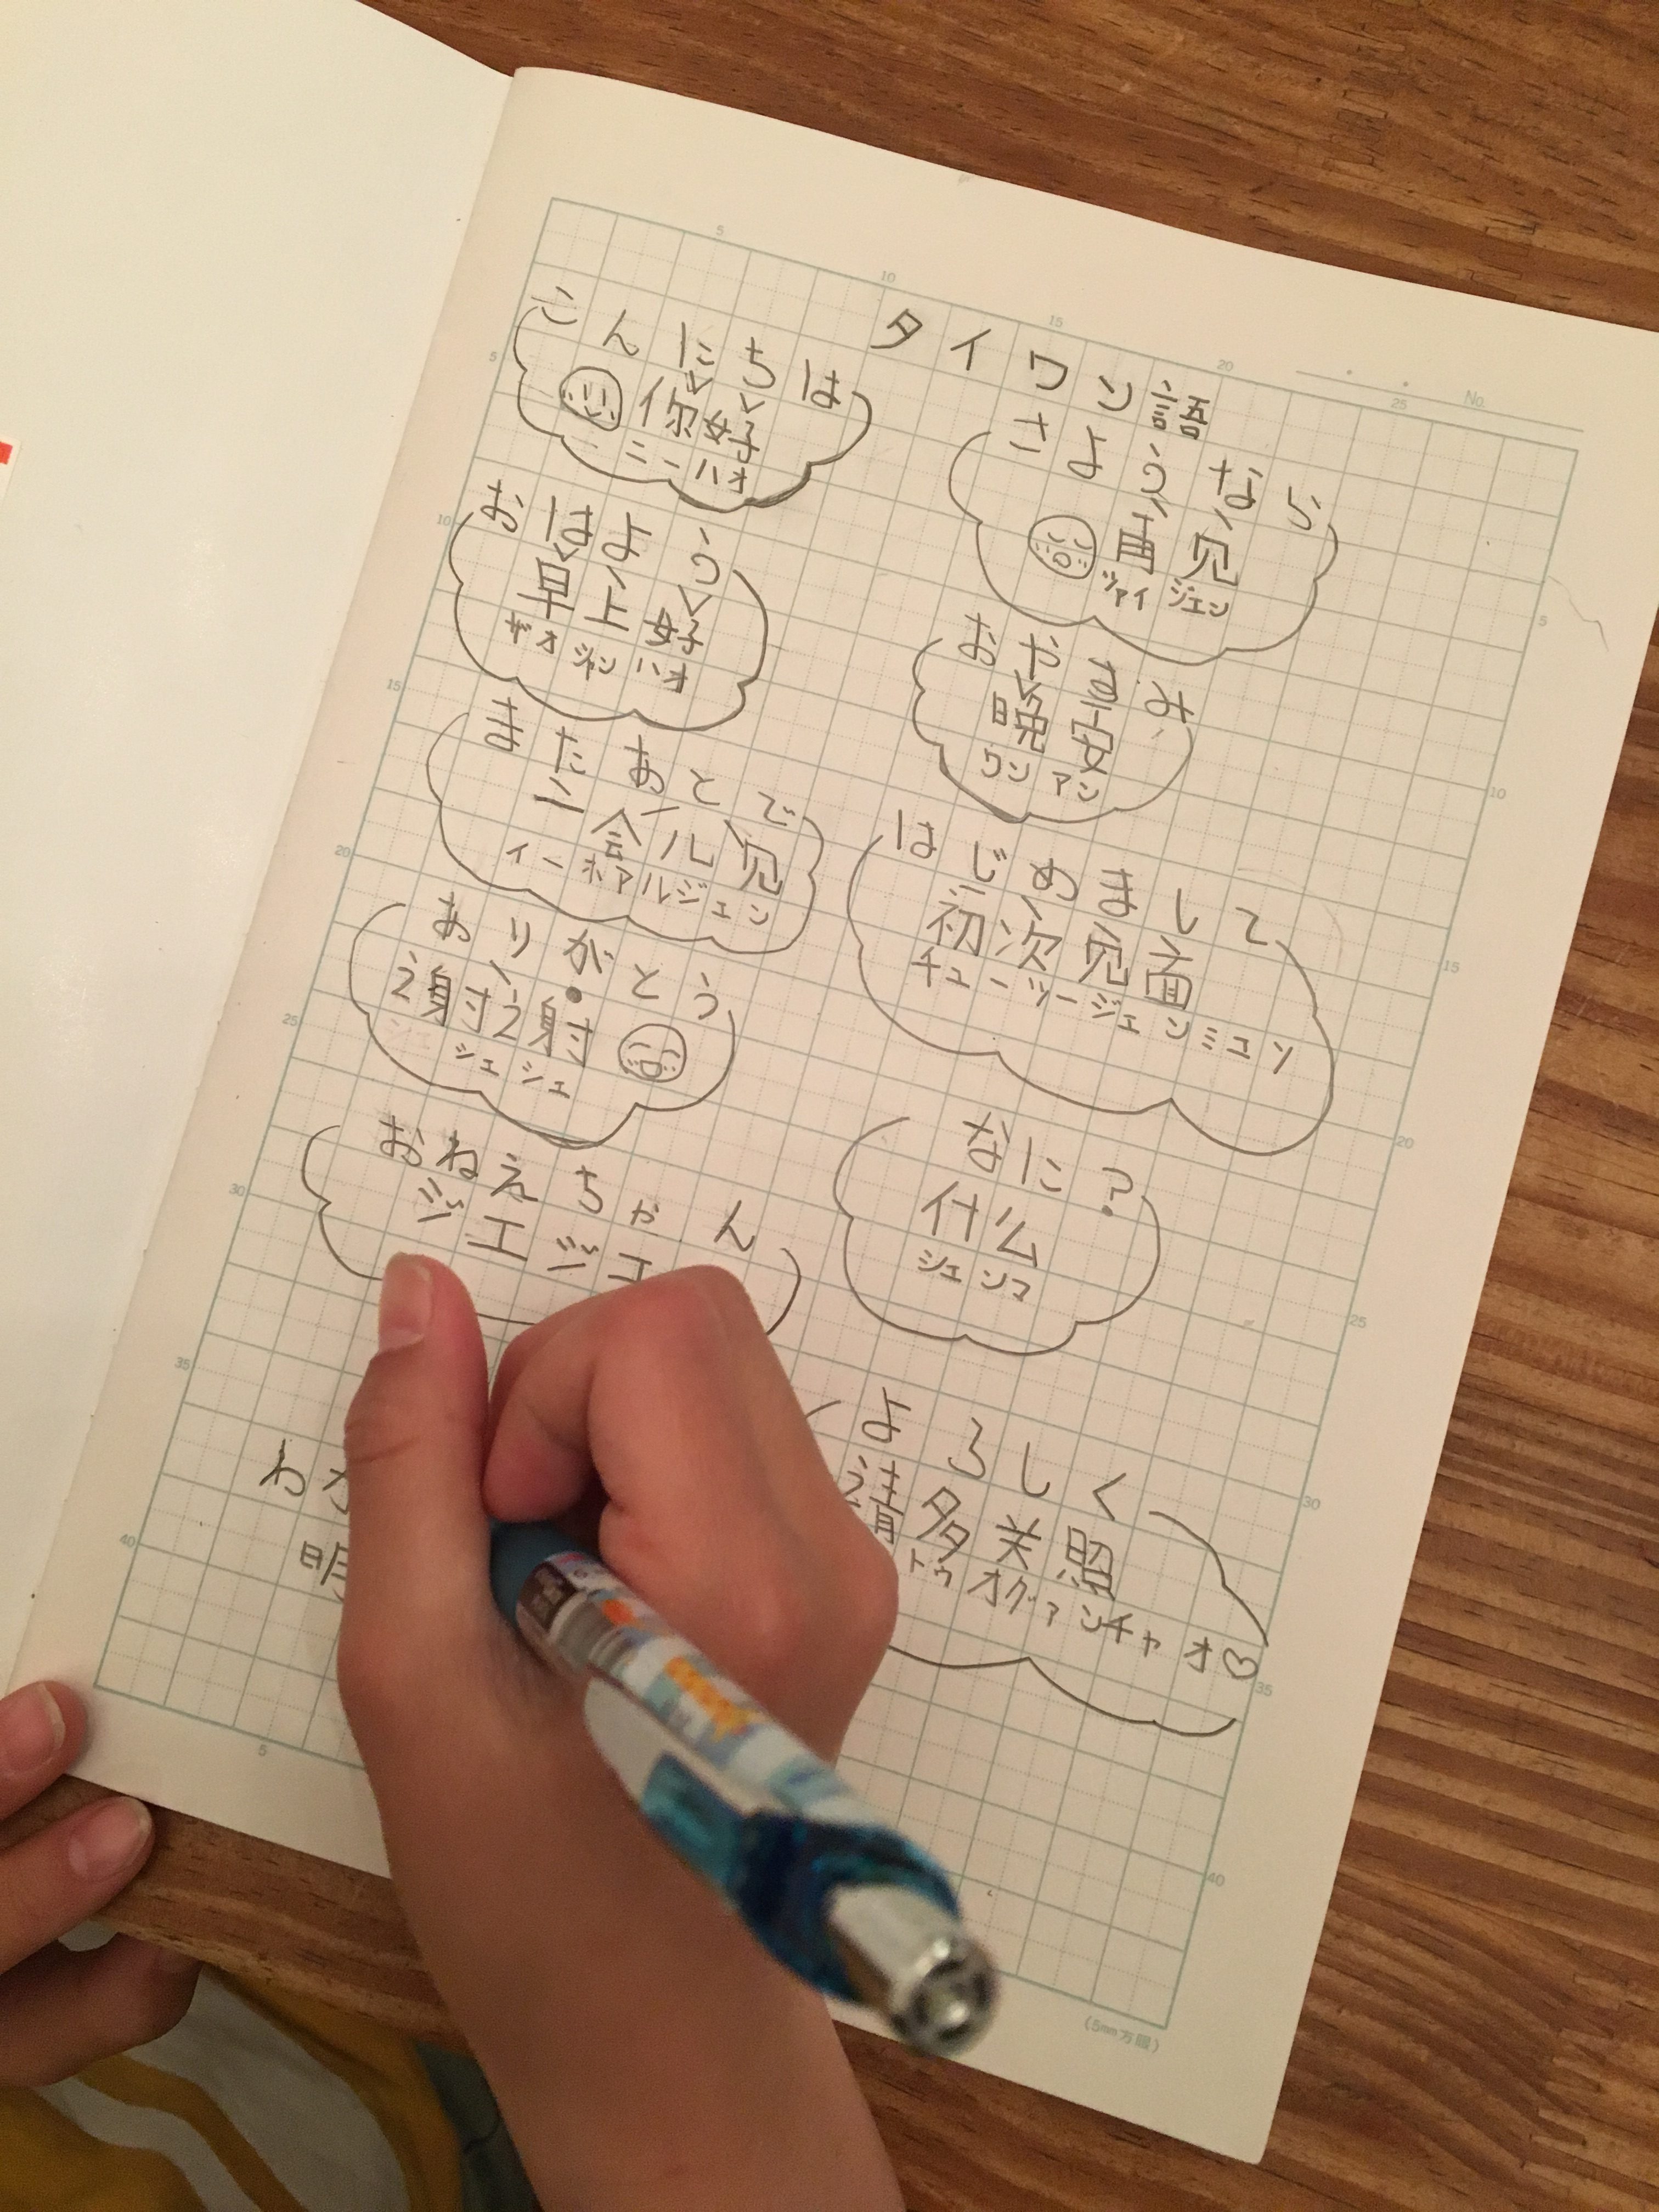 タイワン語
こんにちは
你好
ニーハオ
おはよう
早上好
ザオ ジャン ハオ
またあとで
一会儿见
イーホアルジェン
ありがとう
谢谢
シェシェ
おねえちゃん
ジエジエ
わか
明
さようなら
再见
ヅァイ ジェン
おやすみ
晚安
ワン アン
はじめまして
初次见面
チューツージェンミェン
なに?
什么
シェンマ
よろしく
请多关照
トゥオグァンチャオ♡
No.
5 10 15 20 25
5 10 15 20 25 30 35 40
5 10 15 20 25 30 35 40
5
(5mm方眼)